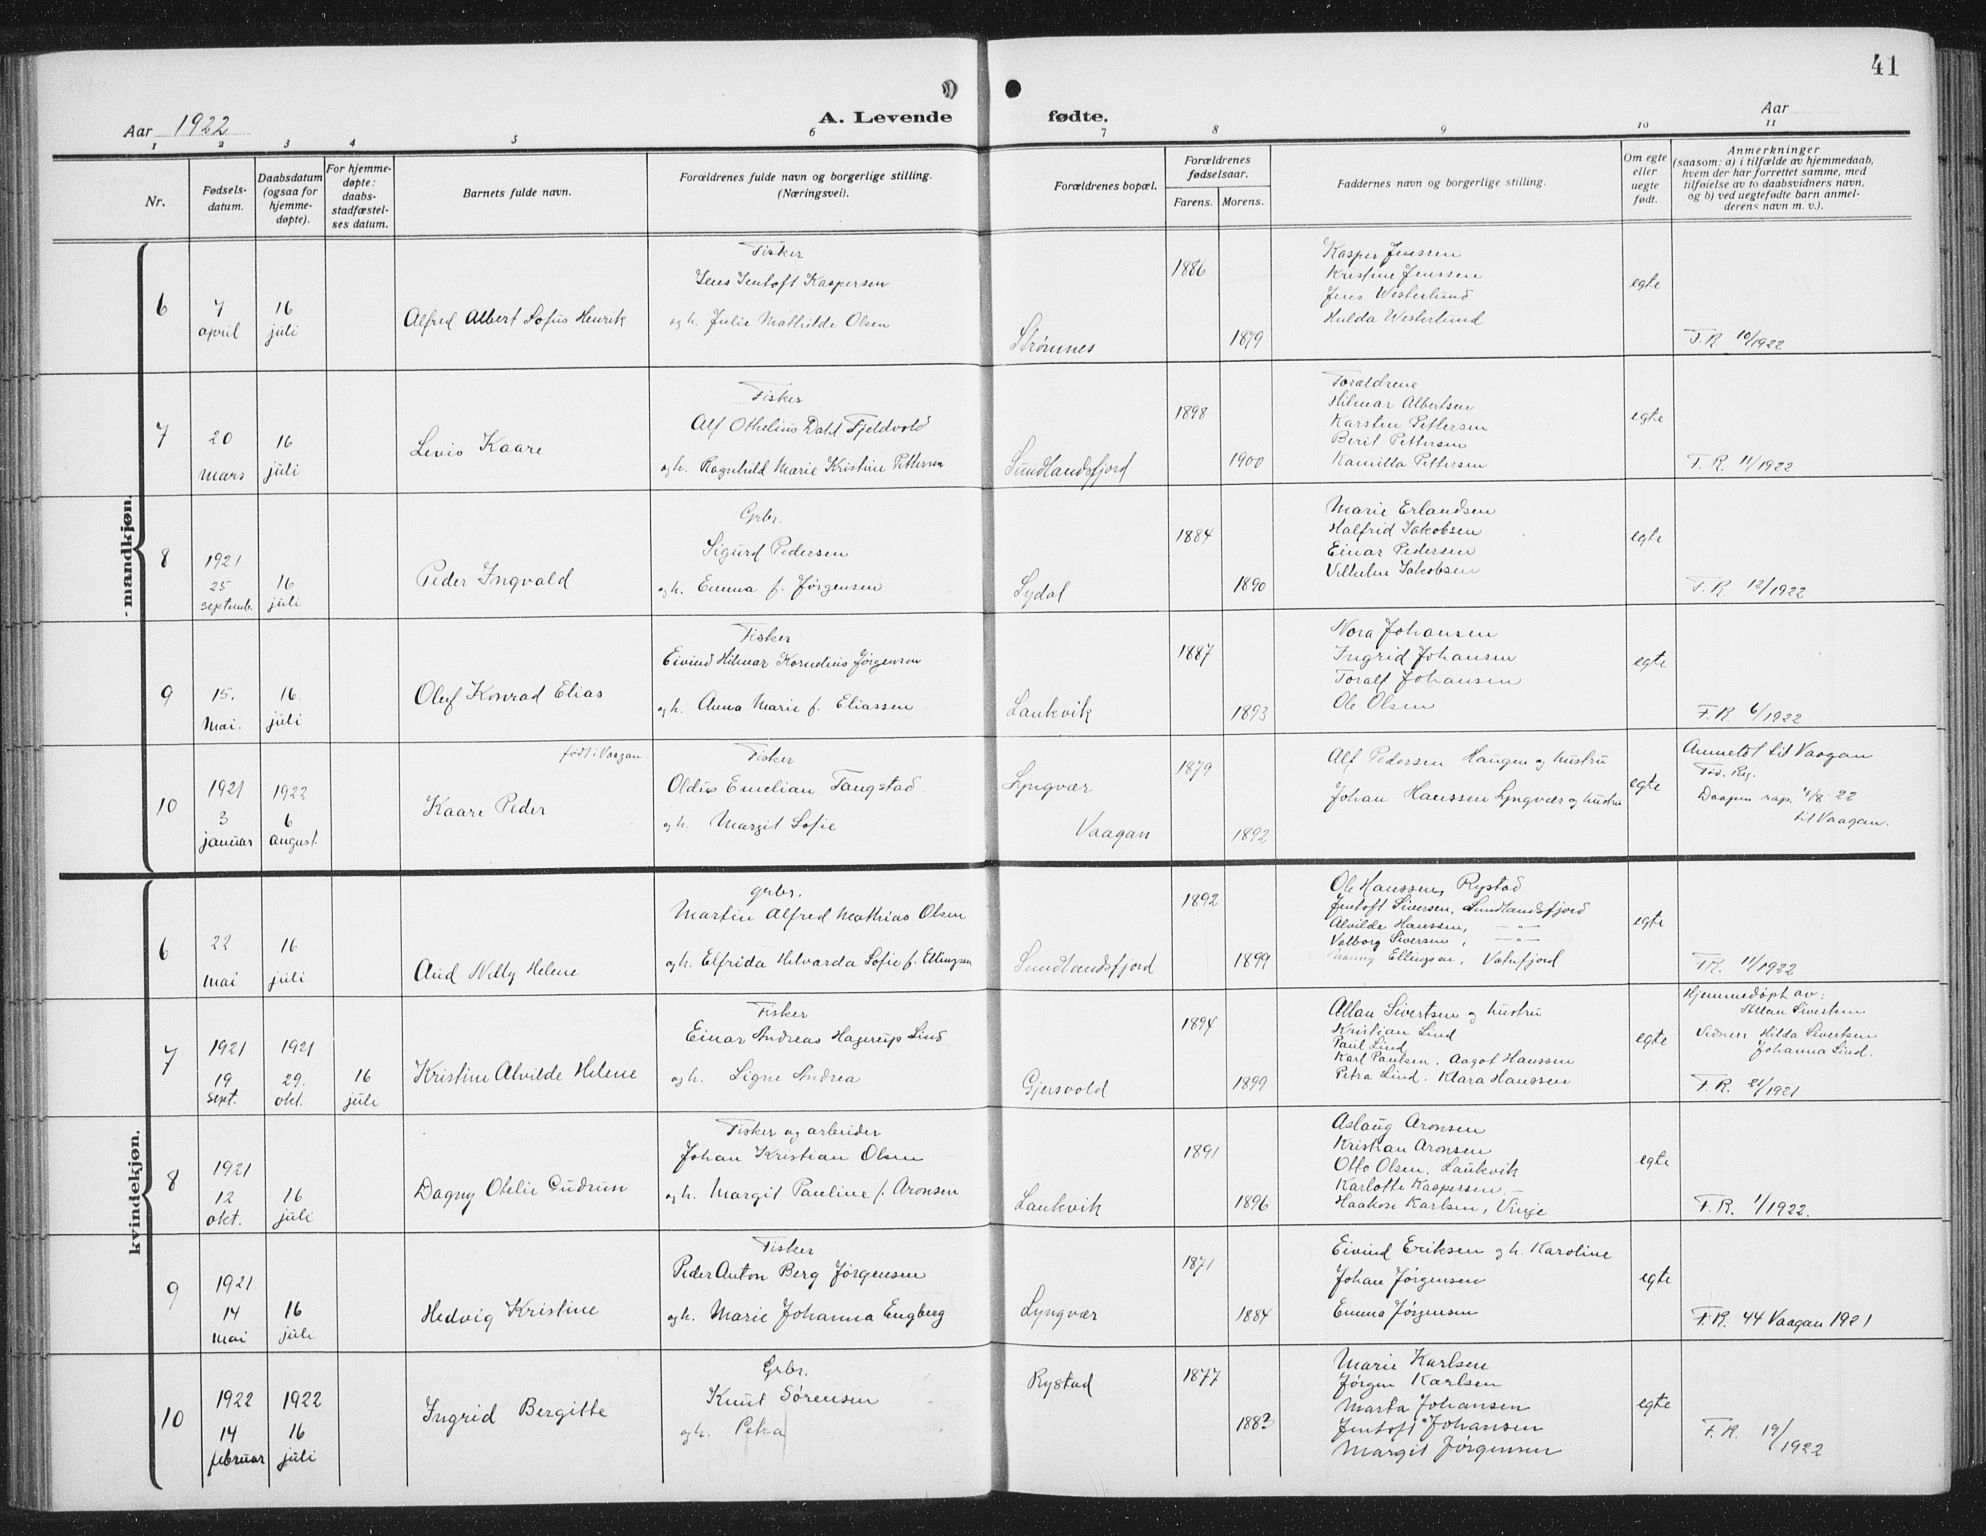 41
Aar 1922
A. Levende fødte.
Aar
1 2 3 4 5 6 7 8 9 10 11
Nr.
Fødsels-
datum.
Daabsdatum
(ogsaa for
hjemme-
døpte).
For hjemme-
døpte:
daabs-
stadfæstel-
ses datum.
Barnets fulde navn.
Forældrenes fulde navn og borgerlige stilling.
(Næringsvei).
Forældrenes bopæl.
Forældrenes
fødselsaar.
Farens. Morens.
Faddernes navn og borgerlige stilling.
Om egte
eller
uegte
født.
Anmerkninger
(saasom: a) i tilfælde av hjemmedaab,
hvem der har forrettet samme, med
tilføielse av to daabsvidners navn,
og b) ved uegtefødte barn anmel-
derens navn m. v.).
- mandkjøn.
6
7
april
16
juli
Alfred Albert Sofus Henrik
Fisker
Jens Jentoft Kaspersen
og h. Julie Mathilde Olsen
Strømnes
1886
1899
Kasper Jenssen
Kristine Jenssen
Jens Westerlund
Hulda Westerlund
egte
F.R. 10/1922
7
20
mars
16
juli
Levis Kaare
Fisker
Alf Othelius Dahl Fjeldvold
og h. Ragnhild Marie Kristine Pettersen
Sundlandsfjord
1898
1900
Forældrene
Hilmar Albertsen
Karsten Pettersen
Berit Pettersen
Kamilla Pettersen
egte
F.R. 11/1922
8
1921
25
septemb.
16
juli
Peder Ingvald
Grbr.
Sigurd Pedersen
og h. Emma f. Jørgensen
Sydal
1884
1890
Marie Erlandsen
Halfrid Jakobsen
Einar Pedersen
Vilhelm Jakobsen
egte
F.R. 12/1922
9
15.
mai.
16
juli
Oluf Konrad Elias
Fisker
Eivind Hilmar Kornelius Jørgensen
og h. Anna Marie f. Eliassen
Laukvik
1887
1893
Nora Johansen
Ingrid Johansen
Toralf Johansen
Ole Olsen
egte
F.R. 6/1922
10
1921
3
januar
1922
6
august.
født i Vaagan
Kaare Peder
Fisker
Oldus Emelian Tangstad
og h. Margit Sofie
Lyngvær
Vaagan
1879
1892
Alf Pedersen Haugen og hustru
Johan Hanssen Lyngvær og hustru
egte
Anmeldt til Vaagan
Fød. Reg.
Daapen rap. 7/8-22
til Vaagan.
kvindekjøn.
6
22
mai
16
juli
Aud Nelly Helene
grbr.
Martin Alfred Mathias Olsen
og h. Elfrida Helvarda Sofie f. Ellingsen
Sundlandsfjord
1892
1899
Ole Hanssen, Rystad
Jentoft Siversen, Sundlandsfjord
Alvilde Hanssen, — " —
Valborg Siversen, — " —
Nanny Ellingsen, Vatnfjord
egte
F.R. 11/1922
7
1921
19
sept.
1921
29.
okt.
16
juli
Kristine Alvilde Helene
Fisker
Einar Andreas Hagerup Lind
og h. Signe Andrea
Gjersvold
1894
1899
Allan Sivertsen og hustru
Kristian Lind
Paul Lind
Karl Paulsen. Aagot Hanssen
Petra Lind. Klara Hanssen
egte
Hjemmedøpt av:
Allan Sivertsen
Vidner: Hilda Sivertsen
Johanna Lind.
F.R. 21/1921
8
1921
12
okt.
16
juli
Dagny Otelie Gudrun
Fisker og arbeider
Johan Kristian Olsen
og h. Margit Pauline f. Aronsen
Laukvik
1891
1896
Aslaug Aronsen
Kristian Aronsen
Otto Olsen, Laukvik
Karlotte Kaspersen
Haakon Karlsen, Vinje
egte
F.R. 1/1922.
9
1921
14
mai
16
juli
Hedvig Kristine
Fisker
Peder Anton Berg Jørgensen
og h. Marie Johanna Engberg
Lyngvær
1871
1884
Eivind Eriksen og h. Karoline
Johan Jørgensen
Emma Jørgensen
egte
F.R. 44 Vaagan 1921
10
1922
14
februar
1922
16
juli
Ingrid Bergitte
Grbr.
Knut Sørensen
og h. Petra
Rystad
1877
1883
Marie Karlsen
Jørgen Karlsen
Marta Johansen
Jentoft Johansen
Margit Jørgensen
egte
F.R. 19/1922